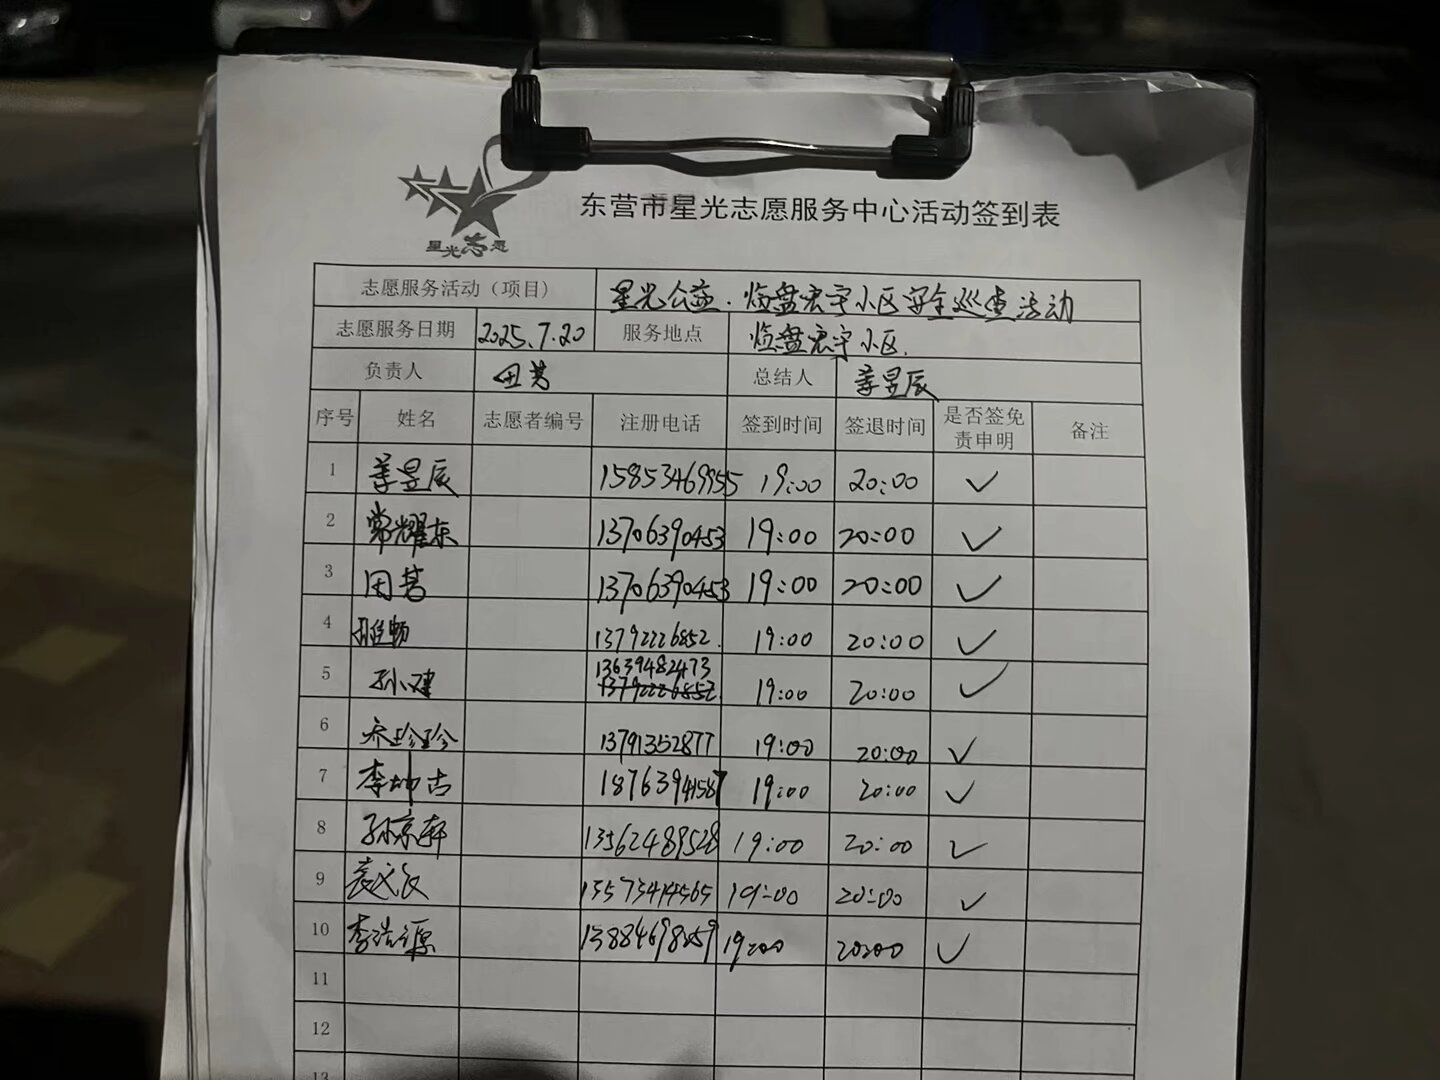 星光志愿
东营市星光志愿服务中心活动签到表
志愿服务活动（项目） 星光公益·焰盘宏宇小区安全巡查活动
志愿服务日期 2025.7.20 服务地点 焰盘宏宇小区.
负责人 田芳 总结人 李昱辰
序号 姓名 志愿者编号 注册电话 签到时间 签退时间 是否签免责申明 备注
1 昱辰 15853469955 19:00 20:00 ✓
2 常耀东 13706390453 19:00 20:00 ✓
3 田 13706390453 19:00 20:00 ✓
4 畅 13792226852. 19:00 20:00 ✓
5 孙建 13639482473 19:00 20:00 ✓
6 乔珍珍 13791352877 19:00 20:00 ✓
7 李坤古 18763941587 19:00 20:00 ✓
8 孙京轩 13562489528 19:00 20:00 ✓
9 袁文 13573414565 19:00 20:00 ✓
10 李浩源 13884698259 19:00 20:00 ✓
11
12
13